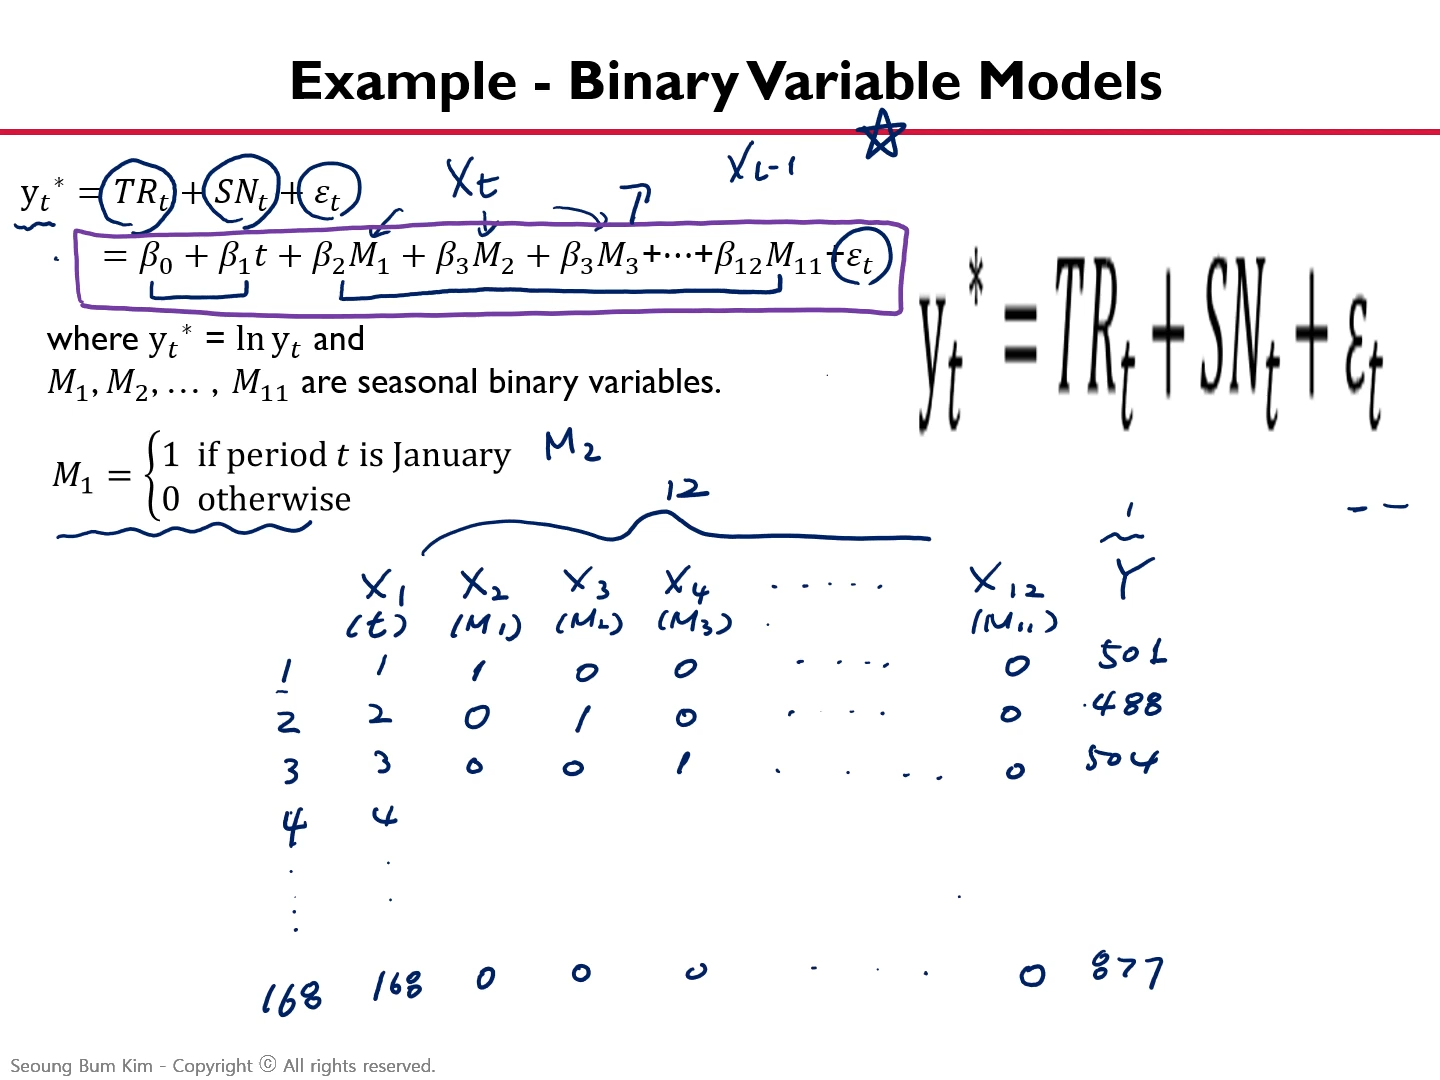 Example - Binary Variable Models
y_t* = TR_t + SN_t + ε_t
X_t
X_t-1
= β_0 + β_1 t + β_2 M_1 + β_3 M_2 + β_3 M_3 +⋯+ β_12 M_11 + ε_t
y_t* = TR_t + SN_t + ε_t
where y_t* = ln y_t and
M_1, M_2, … , M_11 are seasonal binary variables.
M_1 = { 1 if period t is January
0 otherwise
M_2
12
X_1 X_2 X_3 X_4 ..... X_12 Y
(t) (M_1) (M_2) (M_3) . (M_11)
1 1 1 0 0 .... 0 501
2 2 0 1 0 .... 0 488
3 3 0 0 1 .... 0 504
4 4
168 168 0 0 0 ... 0 877
Seoung Bum Kim - Copyright © All rights reserved.